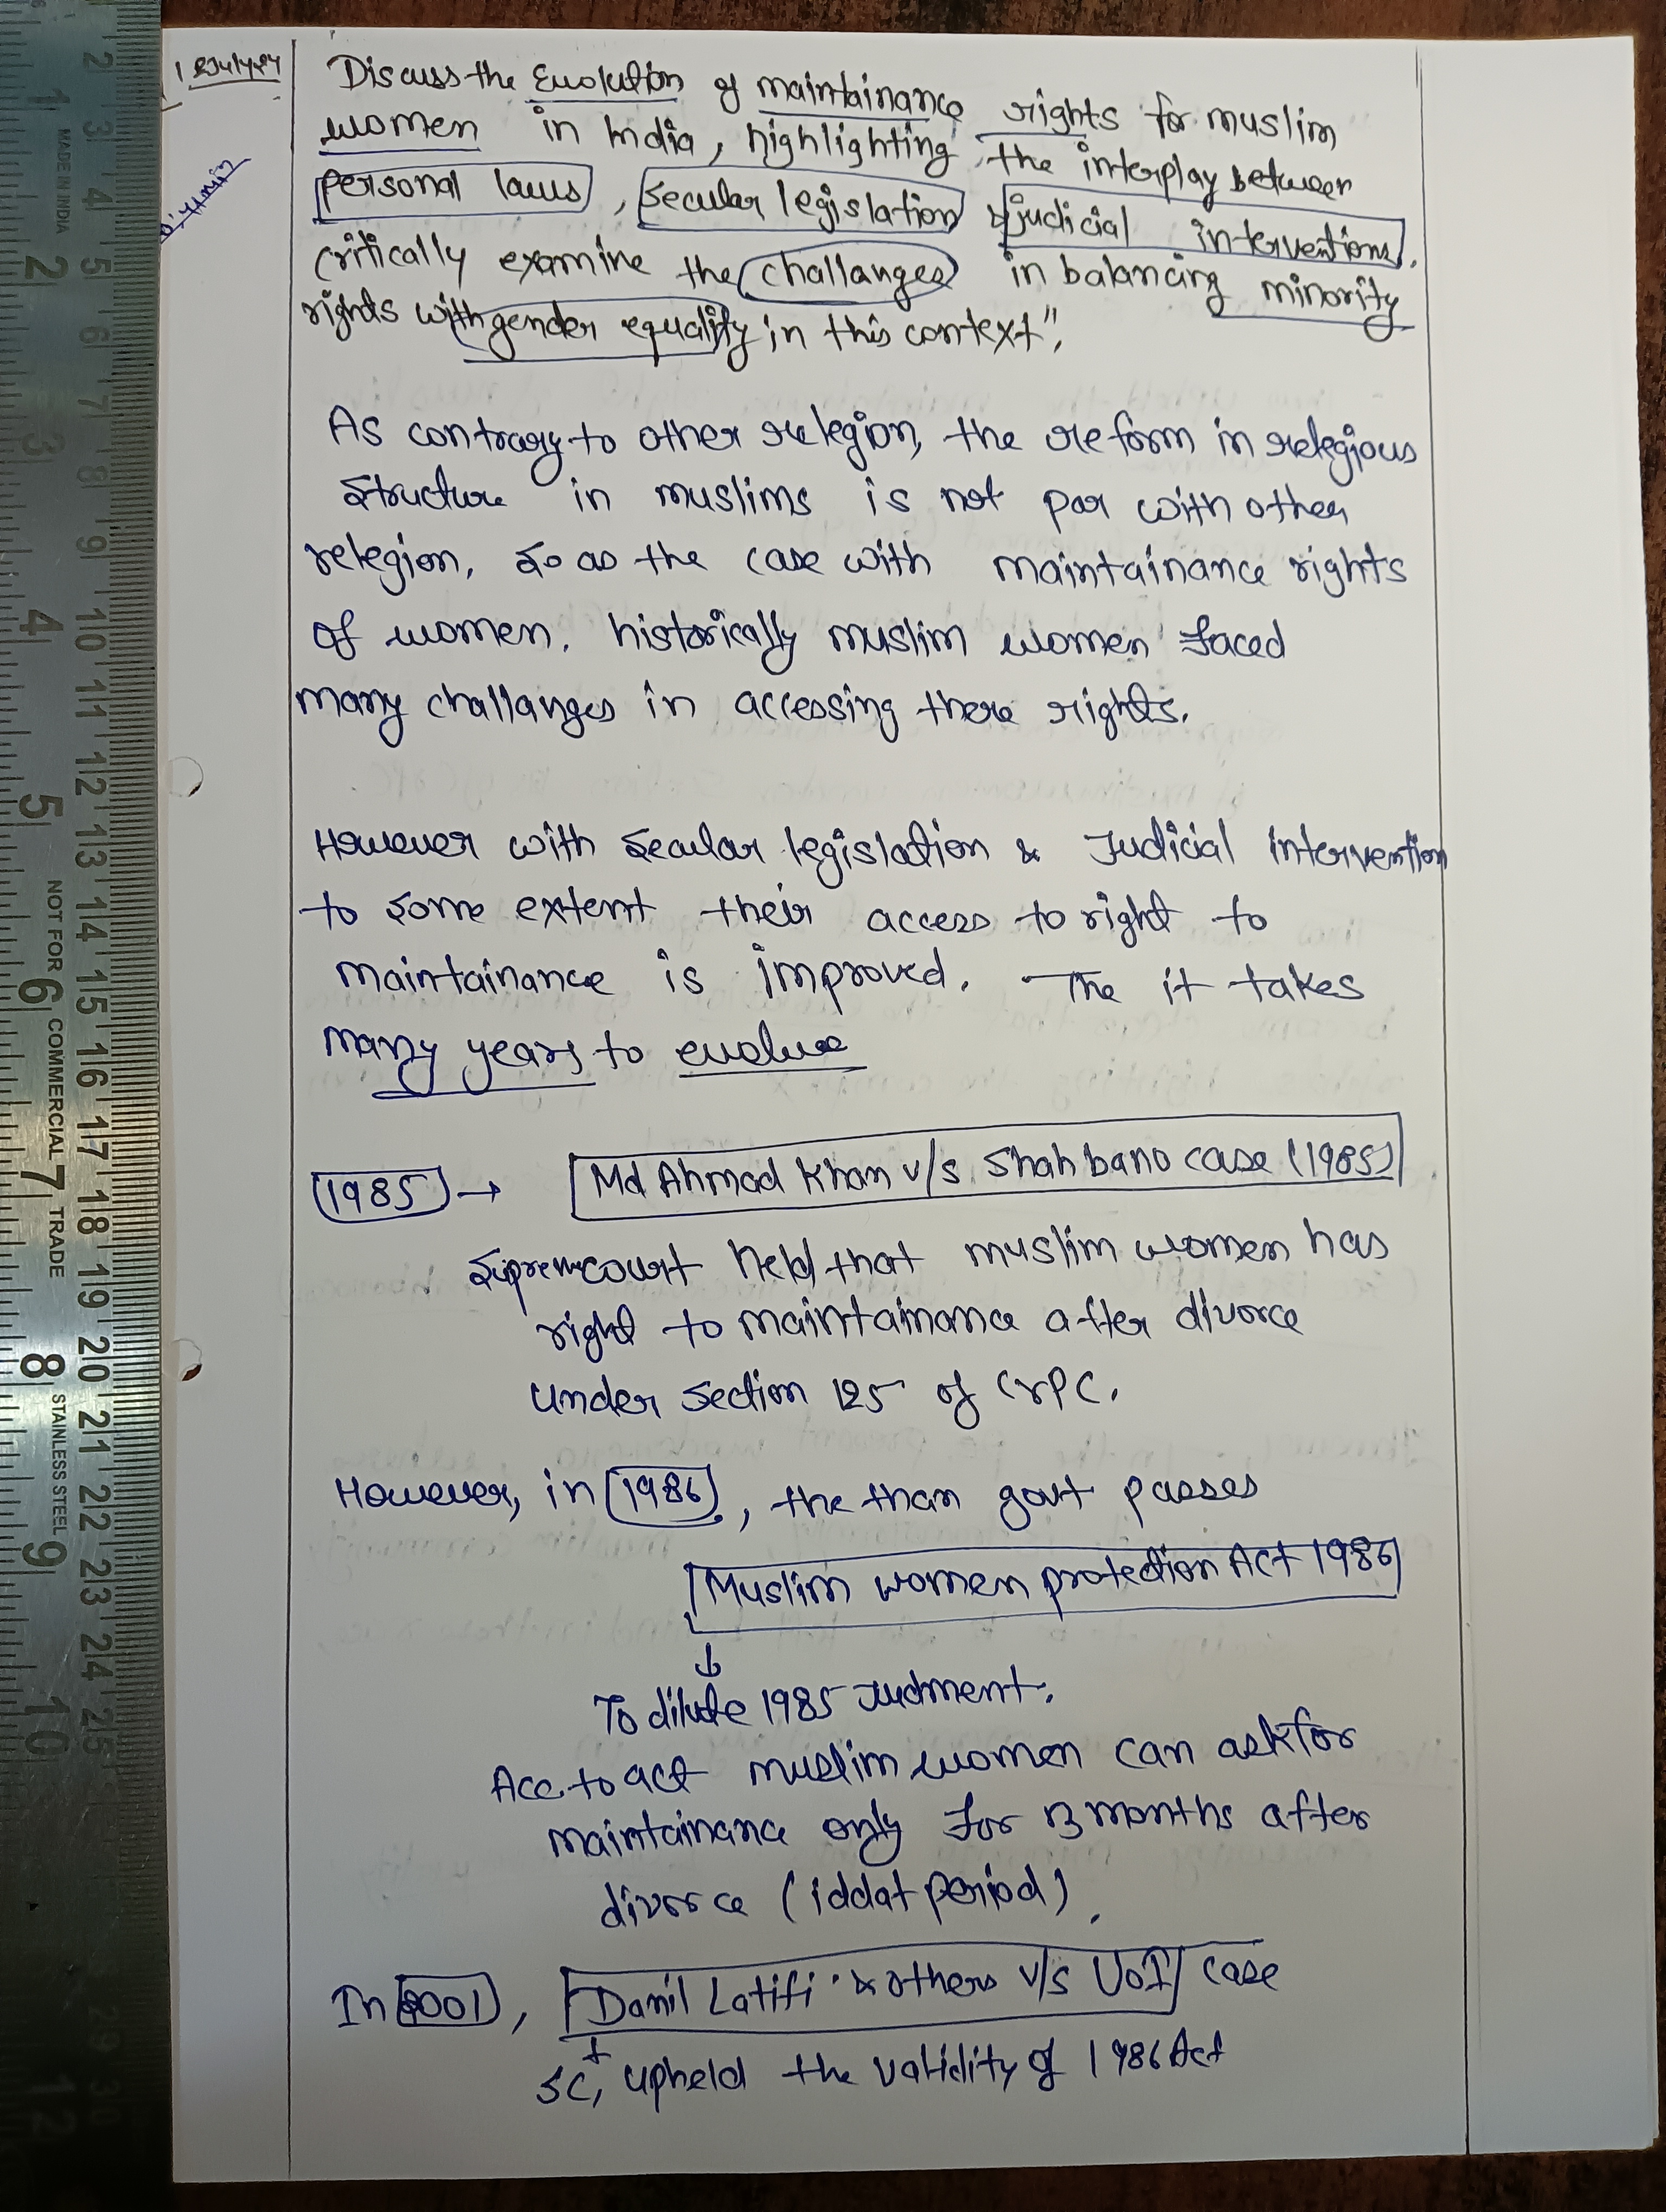 Discuss the Evolution of maintainance rights for muslim
women in India, highlighting the interplay between
personal laws, secular legislation & judicial interventions.
critically examine the challanges in balancing minority
rights with gender equality in this context".
As contrary to other relegion, the reform in relegious
structure in muslims is not par with other
relegion, so as the case with maintainance rights
of women. historically muslim women faced
many challanges in accessing there rights.
However with secular legislation & Judicial intervention
to some extent their access to right to
maintainance is improved. The it takes
many years to evolve
1985 → Md Ahmad Khan v/s Shah bano case (1985)
Supremcourt held that muslim women has
right to maintainance after divorce
under section 125 of CrPC.
However, in 1986, the than govt passes
Muslim women protection Act 1986
↓
To dilute 1985 Judment.
Acc. to act muslim women can ask for
maintainance only for 3 months after
divorce (iddat period).
In 2001, Danil Latifi & others v/s UoI case
SC, upheld the validity of 1986 Act
MADE IN INDIA NOT FOR COMMERCIAL TRADE STAINLESS STEEL
1 2 3 4 5 6 7 8 9 10 12
2 3 4 5 6 7 8 9 10 11 12 13 14 15 16 17 18 19 20 21 22 23 24 25 29 30